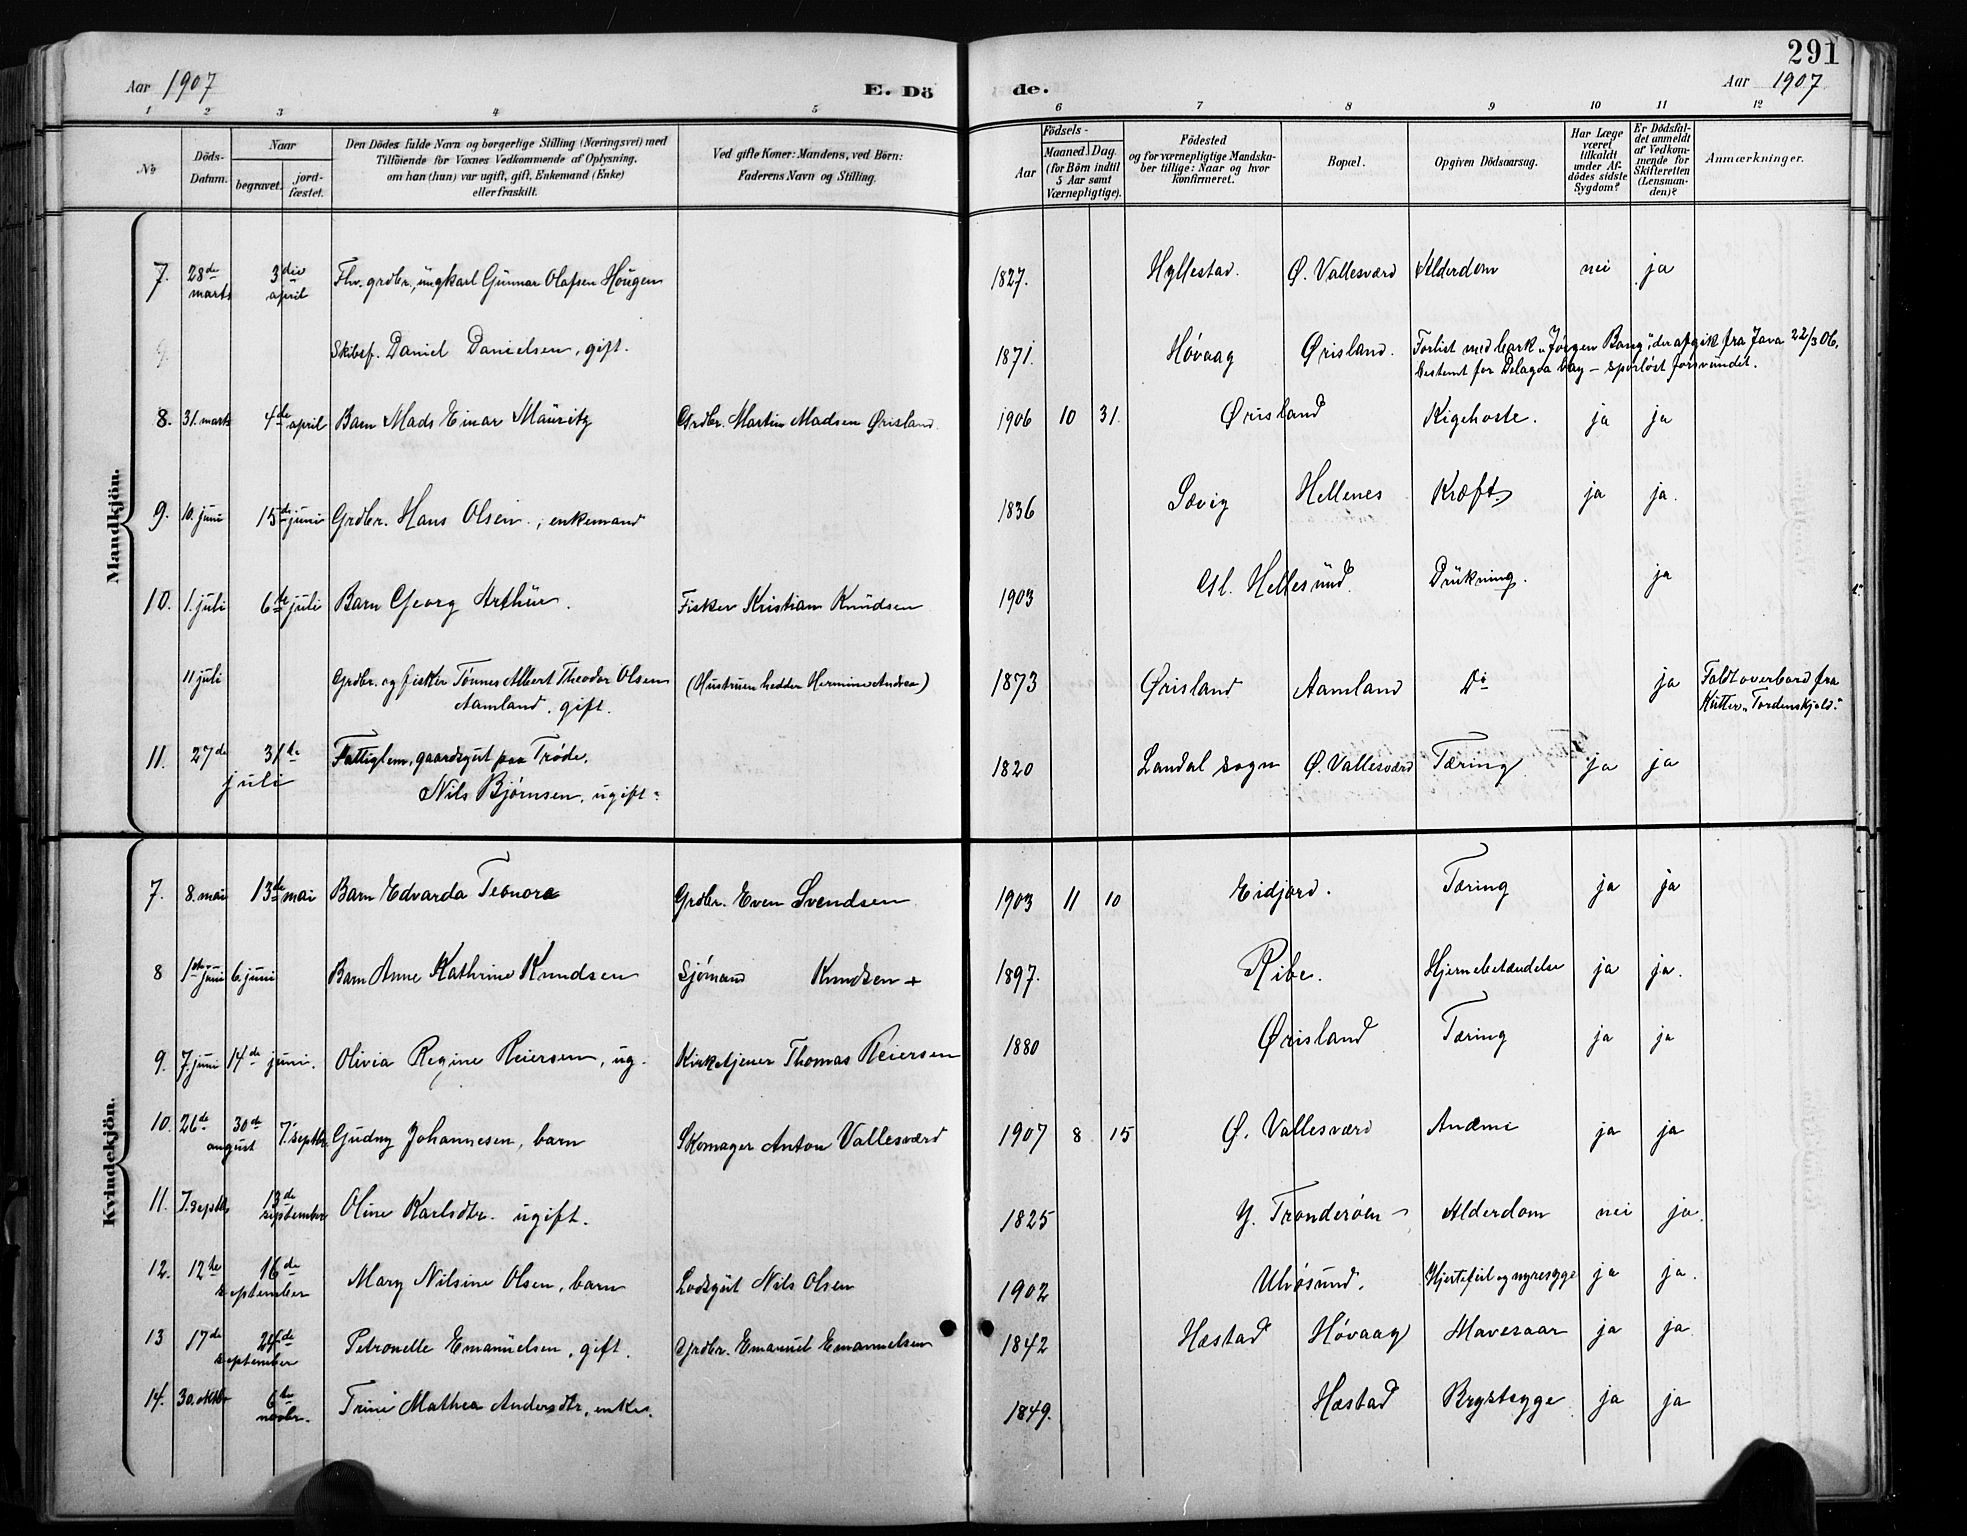 291
Aar 1907
E. Döde.
Aar 1907
1 2 3 4 5 6 7 8 9 10 11 12
No
Döds-Datum.
Naar
begravet.
jordfæstet.
Den Dödes fulde Navn og borgerlige Stilling (Næringsvei) med
Tilföiende for Voxnes Vedkommende af Oplysning,
om han (hun) var ugift, gift, Enkemand (Enke)
eller fraskilt.
Ved gifte Koner: Mandens, ved Börn:
Faderens Navn og Stilling.
Födsels-
Aar
Maaned. Dag.
(for Börn indtil
5 Aar samt
Værnepligtige).
Födested
og for værnepligtige Mandska-
ber tillige: Naar og hvor
konfirmeret.
Bopæl.
Opgiven Dödsaarsag.
Har Læge
været
tilkaldt
under Af-
dödes sidste
Sygdom?
Er Dödsfal-
det anmeldt
af Vedkom-
mende for
Skifteretten
(Lensman-
den)?
Anmærkninger.
Mandkjön.
7. 28de marts 3die april Fhv. grdbr., ungkarl Gunnar Olafsen Hougen 1827. Hyllestad. Ø. Vallesværd Alderdom nei ja
Skibsf. Daniel Danielsen, gift. 1871. Høvaag Ørisland. Forlist med bark "Jørgen Bang", der afgik fra Java 22/3 06,
bestemt for Delagoa bay – sporløst forsvundet.
8. 31. marts 4de april Barn Mads Einar Mauritz Grdbr. Martin Madsen Ørisland. 1906 10 31. Ørisland Kighoste. ja ja
9. 10. juni 15de juni Grdbr. Hans Olsen, enkemand 1836 Søvig Hellenes Kræft ja ja.
10. 1. juli 6te juli Barn Georg Arthur. Fisker Kristian Knudsen 1903 Gl. Hellesund. Drukning. ja
11 juli Grdbr. og fisker Tønnes Albert Theodor Olsen (Hustruen hedder Hermine Andrea) 1873 Ørisland Aamland Do ja Faldt overbord fra
Aamland. gift. Kutter "Tordenskjold."
11. 27de 31te juli Fattiglem, gaardsgut paa Trøde. 1820 Landal sogn Ø. Vallesværd Tæring ja ja
Nils Bjørnsen, ugift.
Kvindekjön.
7. 8. mai 13de mai Barn Edvarda Teonora Grdbr. Even Svendsen 1903 11 10 Eidjord. Tæring ja ja
8 1ste juni 6. juni Barn Anne Kathrine Knudsen Sjømand Knudsen + 1897. Ribe. Hjernebetændelse ja ja.
9. 7. juni 14de juni. Olivia Regine Reiersen, ug. Kirketjener Thomas Reiersen 1880 Ørisland Tæring ja ja
10. 26de 30de august 7. septbr. Gudny Johannesen, barn Skomager Anton Vallesværd 1907 8 15 Ø. Vallesværd Anæmi ja ja
11. 7. septbr 13de september Oline Karlsdtr. ugift. 1825 Y. Tronderøen Alderdom nei ja.
12. 12te 16de september Mary Nilsine Olsen, barn Lodsgut Nils Olsen 1902 Ulvøsund. Hjertefeil og nyresyge ja ja.
13 17de 24de september Petronelle Emanuelsen, gift. Grdbr. Emanuel Emanuelsen 1842 Hæstad Høvaag Mavesaar ja ja
14. 30. oktbr 6te novbr. Trine Mathea Andersdtr, enke. 1849. Hæstad Brystsyge ja ja